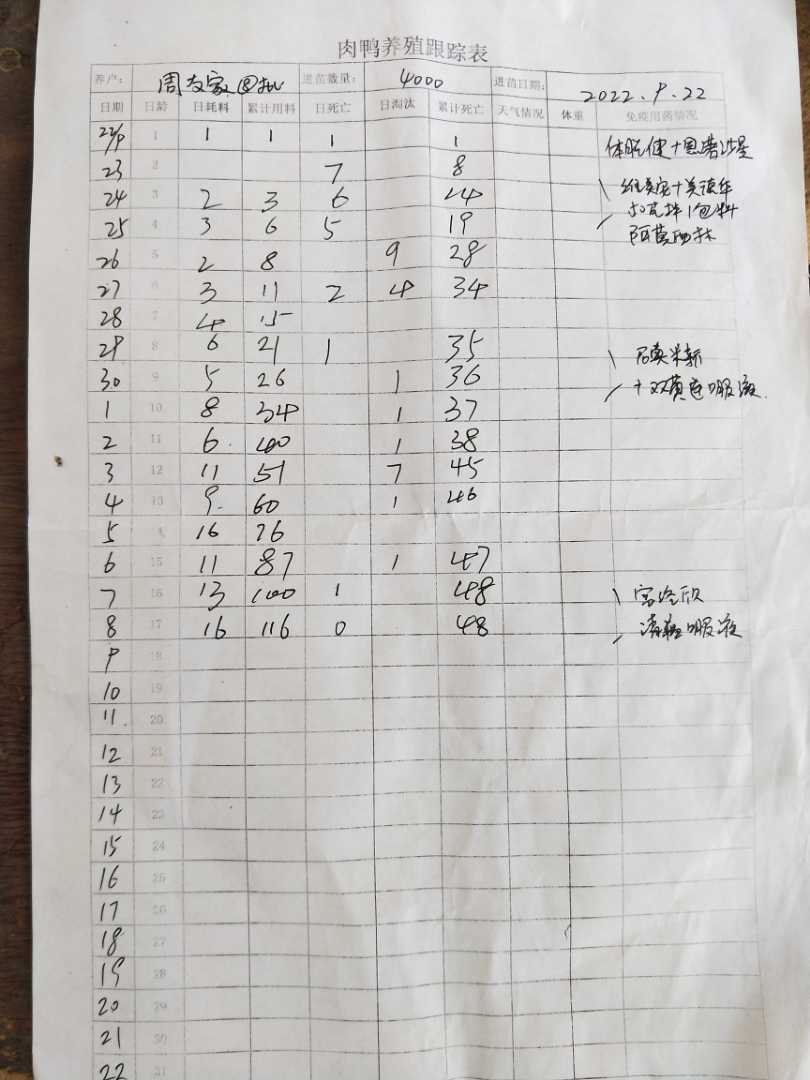 肉鸭养殖跟踪表
养户: 周友家 进苗数量: 4000 进苗日期: 2022.9.22
日期 日龄 日耗料 累计用料 日死亡 日淘汰 累计死亡 天气情况 体重 免疫用菌情况
22/9 1 1 1 1 1 体肥健+恩诺沙星
23 2 7 8
24 3 2 3 6 14
25 4 3 6 5 19 阿莫西林
26 5 2 8 9 28
27 6 3 11 2 4 34
28 7 4 15
29 8 6 21 1 35
30 9 5 26 1 36 +双黄连口服液.
1 10 8 34 1 37
2 11 6. 40 1 38
3 12 11 51 7 45
4 13 9. 60 1 46
5 16 76
6 15 11 87 1 47
7 16 13 100 1 48
8 17 16 116 0 48 口服液
9 18
10 19
11. 20
12 21
13 22
14 23
15 24
16 25
17 26
18 27
19 28
20 29
21 30
22 31